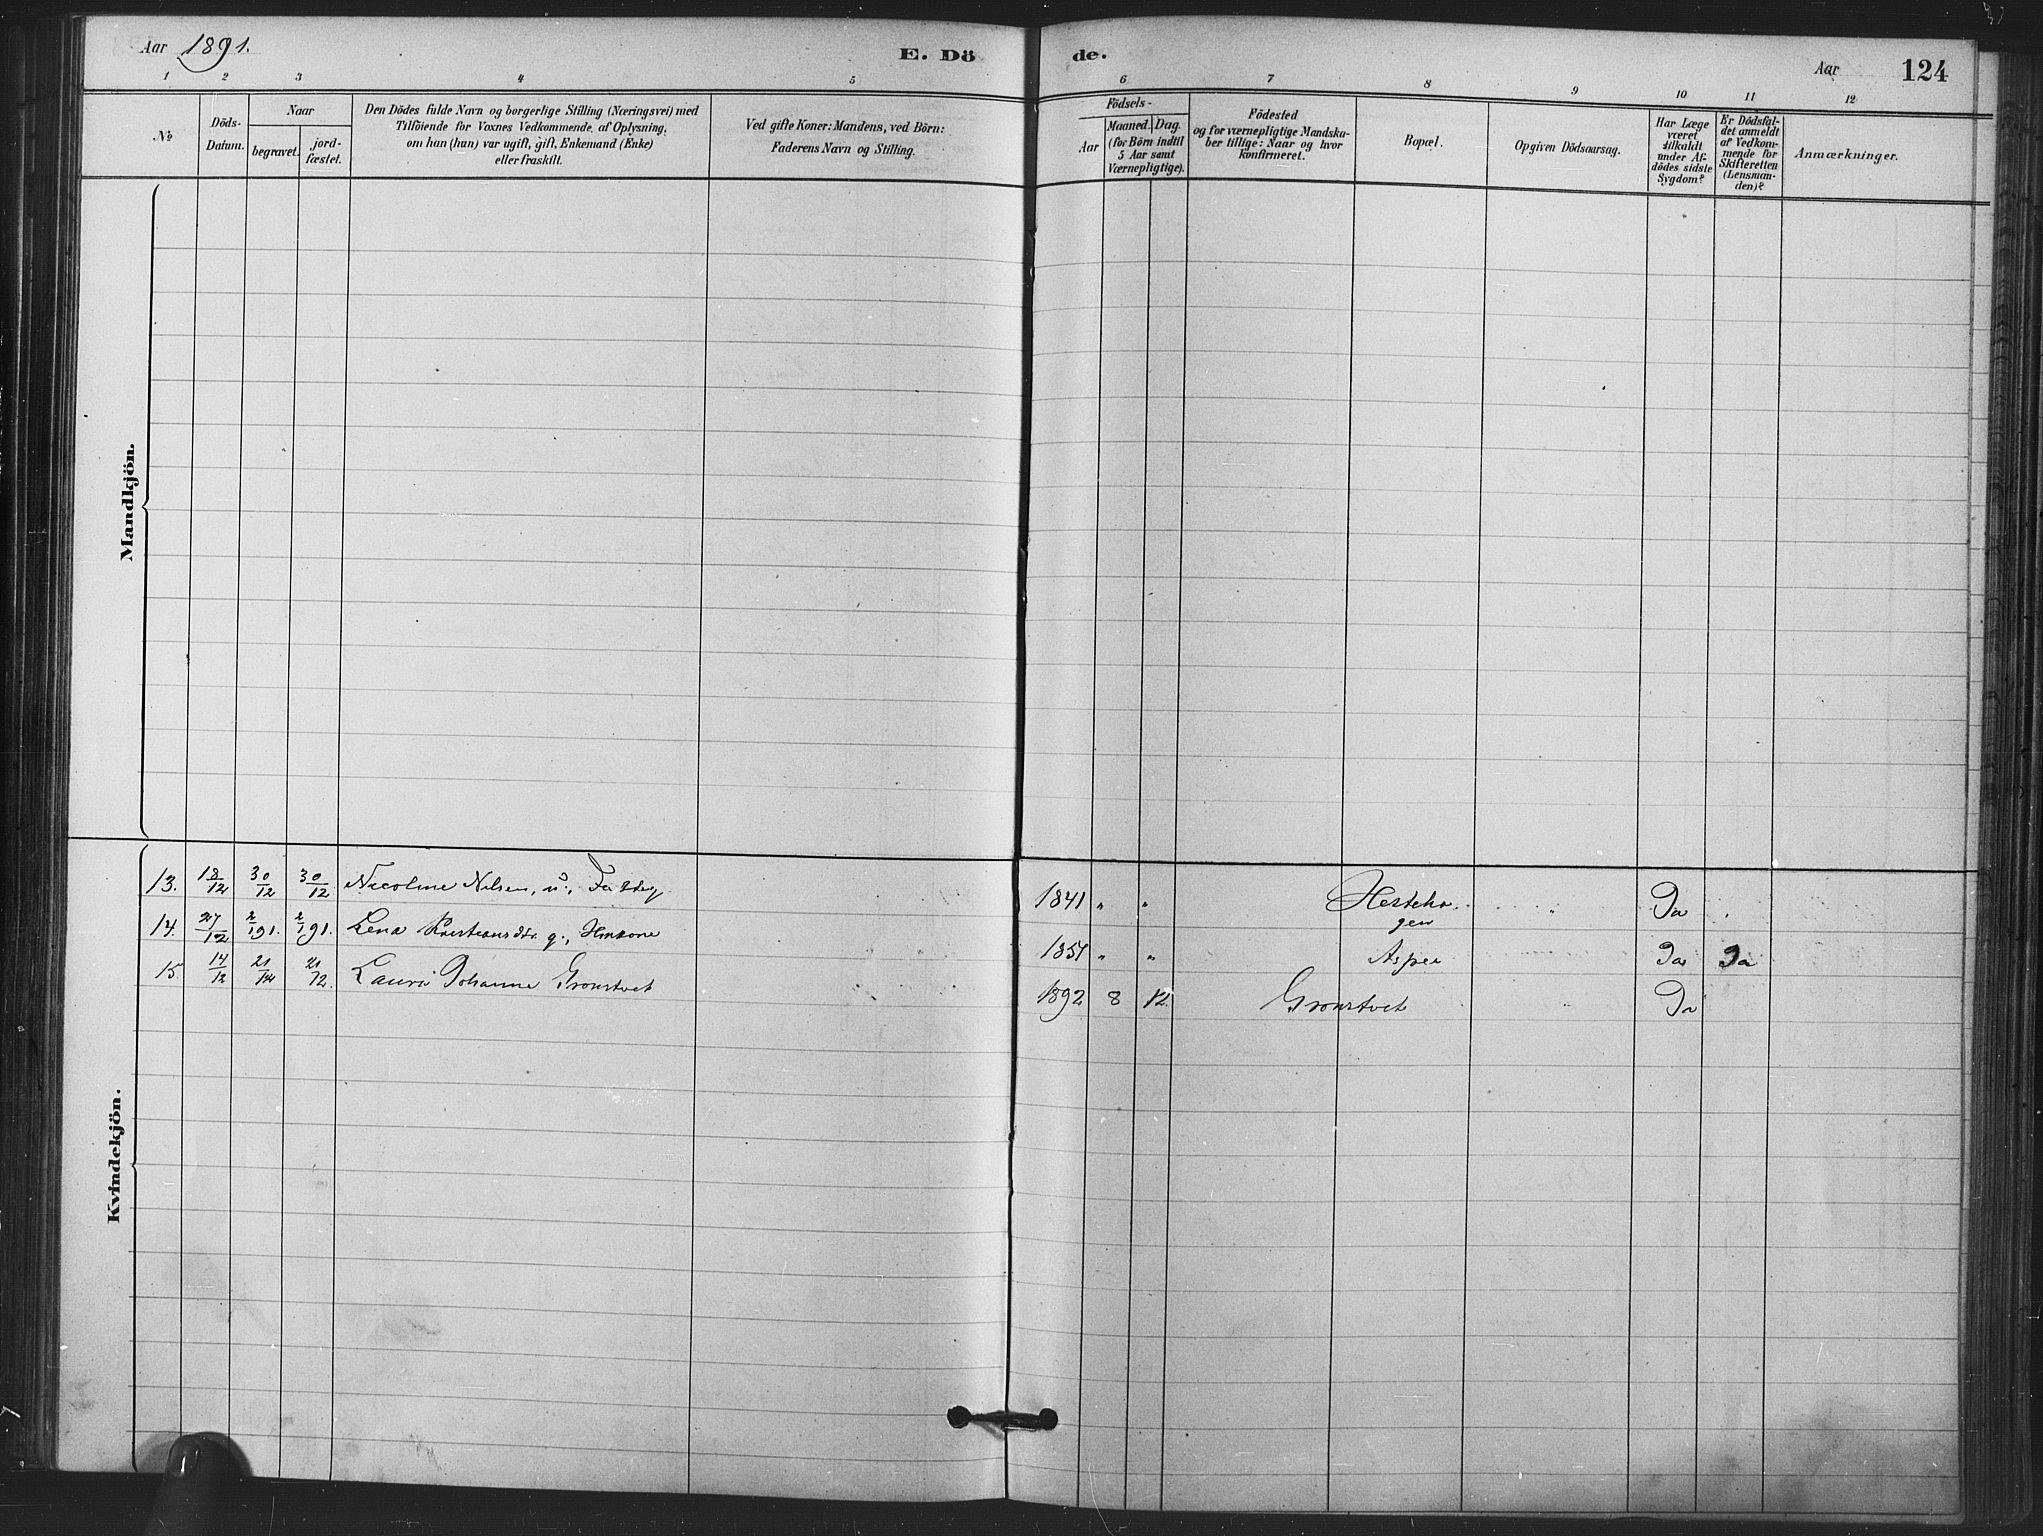 Aar 1891.
E. Dö
de.
Aar 124
1 2 3 4 5 6 7 8 9 10 11 12
№
Döds-
Datum.
Naar
begravet.
jord-
fæstet.
Den Dödes fulde Navn og borgerlige Stilling (Næringsvei) med
Tilföiende for Voxnes Vedkommende af Oplysning,
om han (hun) var ugift, gift, Enkemand (Enke)
eller fraskilt.
Ved gifte Koner: Mandens, ved Börn:
Faderens Navn og Stilling.
Födsels-
Aar
Maaned. Dag.
(for Börn indtil
5 Aar samt
Værnepligtige).
Födested
og for værnepligtige Mandska-
ber tillige: Naar og hvor
konfirmeret.
Bopæl.
Opgiven Dödsaarsag.
Har Læge
været
tilkaldt
under Af-
dödes sidste
Sygdom?
Er Dödsfal-
det anmeldt
af Vedkom-
mende for
Skifteretten
(Lensman-
den)?
Anmærkninger.
Mandkjön.
13. 18/12 30/12 30/12 Nicoline Nilsen, u., 1841 " " Hesteha- " Ja
gen
14. 27/12 2/1 91. 2/1 91. Lena g., 1851 " " Aspee Ja Ja
15. 14/12 21/12 21/12 Laura Johanne Gronstvet 1892 8 12. Gronstvet " Ja
Kvindekjön.